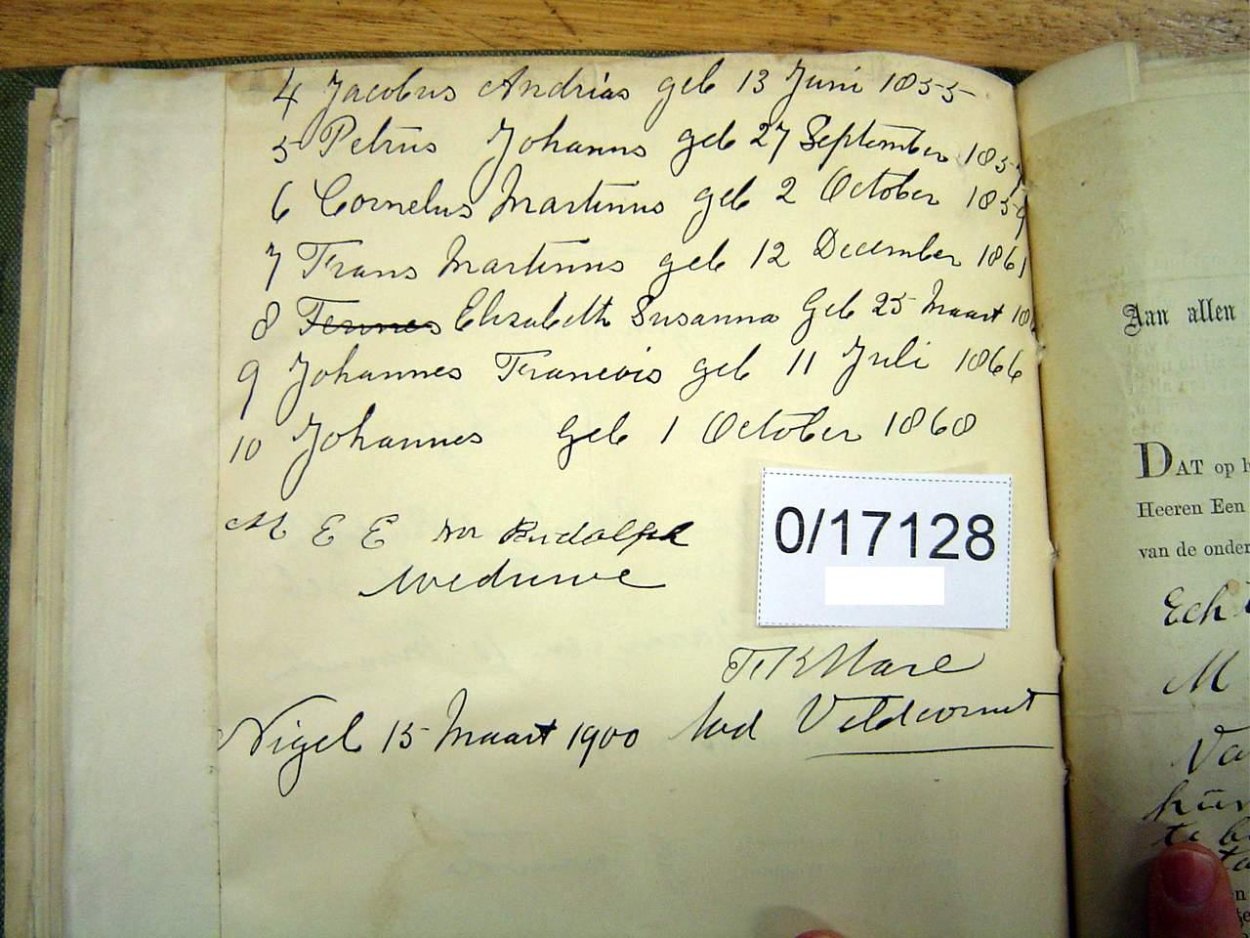 4 Jacobus Andrias geb 13 Juni 1855
5 Petrus Johanns geb 27 September 1857
6 Cornelus Martinus geb 2 October 1859
7 Frans Martinus geb 12 December 1861
8 Elisabeth Susanna Geb 25 Maart
9 Johannes Francois geb 11 Juli 1866
10 Johannes Geb 1 October 1868
M E E Rudolph
Weduwe
0/17128
Nigel 15 Maart 1900 Veldcornet
Aan allen
DAT op
Heeren Een
van de onder
Ech
M
Va
te